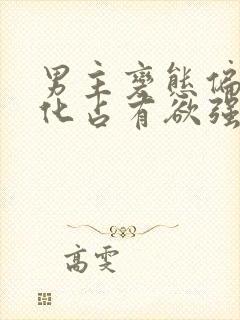 男主变态偏
化占有欲强
高雯